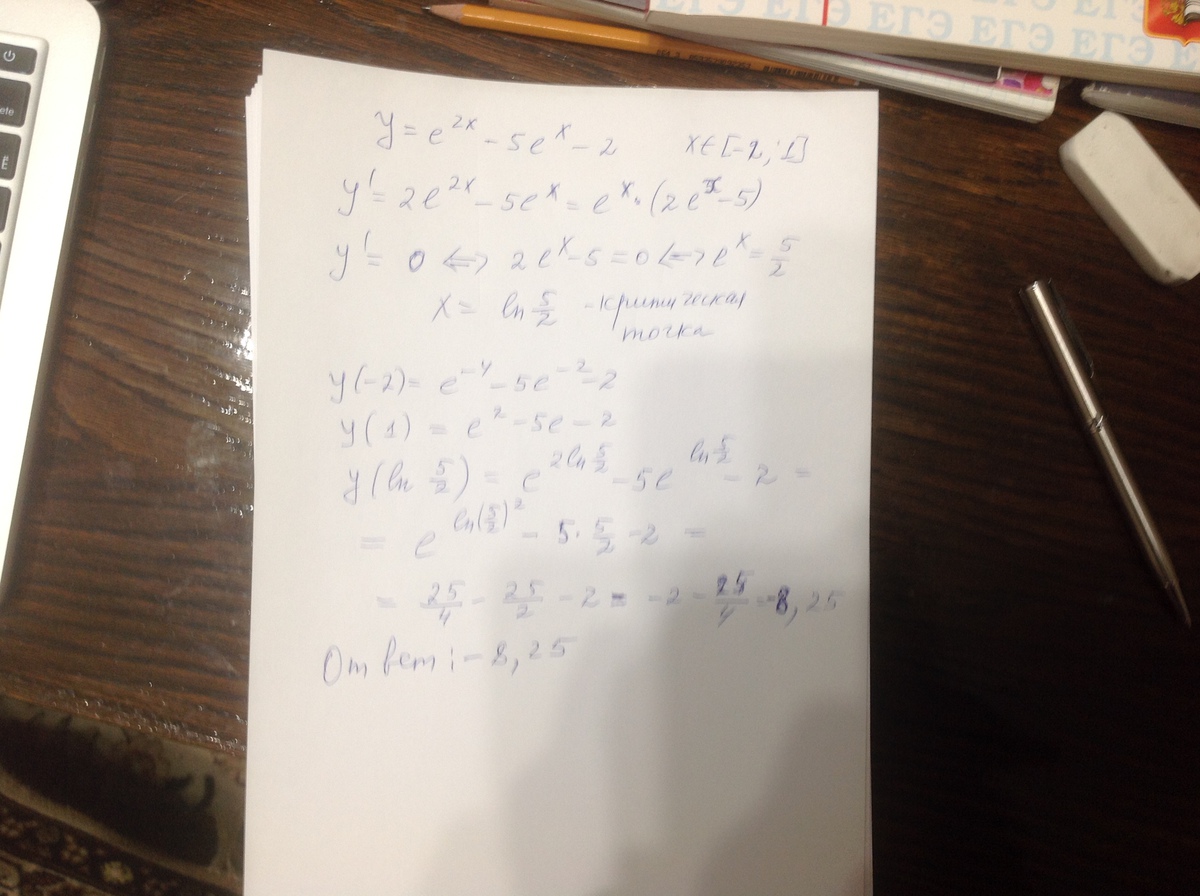 ЕГЭ ЕГЭ ЕГЭ
ЕГЭ ЕГЭ ЕГЭ ЕГЭ
y = e^{2x} - 5e^x - 2 x∈[-2; 1]
y' = 2e^{2x} - 5e^x = e^x · (2e^x - 5)
y' = 0 <=> 2e^x - 5 = 0 <=> e^x = 5/2
x = ln 5/2 - критическая
точка
y(-2) = e^{-4} - 5e^{-2} - 2
y(1) = e^2 - 5e - 2
y(ln 5/2) = e^{2ln 5/2} - 5e^{ln 5/2} - 2 =
= e^{ln(5/2)^2} - 5 · 5/2 - 2 =
= 25/4 - 25/2 - 2 = -2 - 25/4 = -8,25
Ответ: -8,25